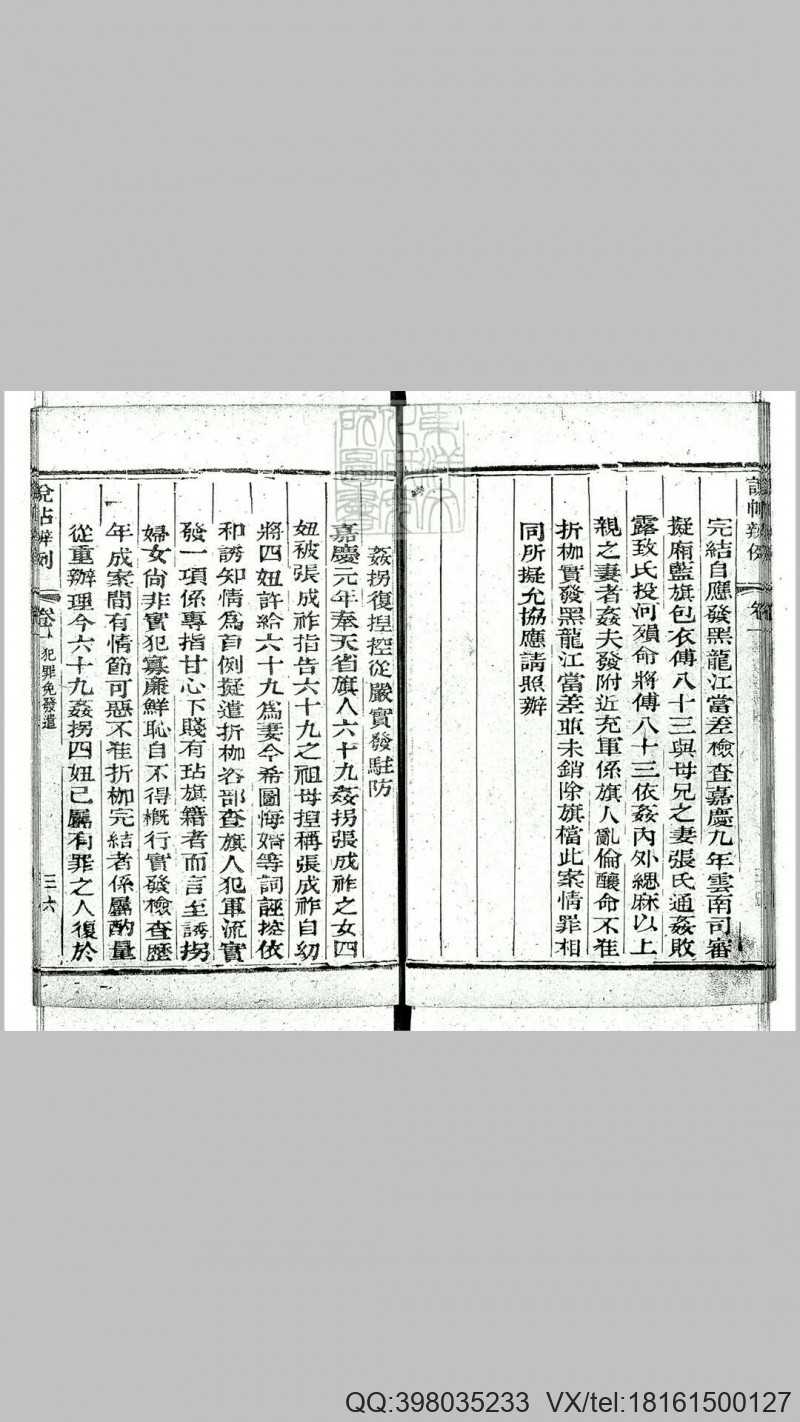 說帖辨例
卷一
完結自應發黑龍江當差檢查嘉慶九年雲南司審
擬廂藍旗包衣傅八十三與母兄之妻張氏通姦敗
露致氏投河殞命將傅八十三依姦內外緦麻以上
親之妻者姦夫發附近充軍係旗人亂倫釀命不准
折枷實發黑龍江當差並未銷除旗檔此案情罪相
同所擬允協應請照辦
姦拐復捏控從嚴實發駐防
嘉慶元年奉天省旗人六十九姦拐張成祚之女四
妞被張成祚指告六十九之祖母捏稱張成祚自幼
將四妞許給六十九為妻今希圖悔婚等詞誣控依
和誘知情為首例擬遣折枷咨部查旗人犯軍流實
發一項係專指甘心下賤有玷旗籍者而言至誘拐
婦女尚非實犯寡廉鮮恥自不得概行實發檢查歷
年成案間有情節可惡不准折枷完結者係屬酌量
從重辦理今六十九姦拐四妞已屬有罪之人復於
說帖辨例
卷一
犯罪免發遣
三六
QQ:398035233 VX/tel:18161500127